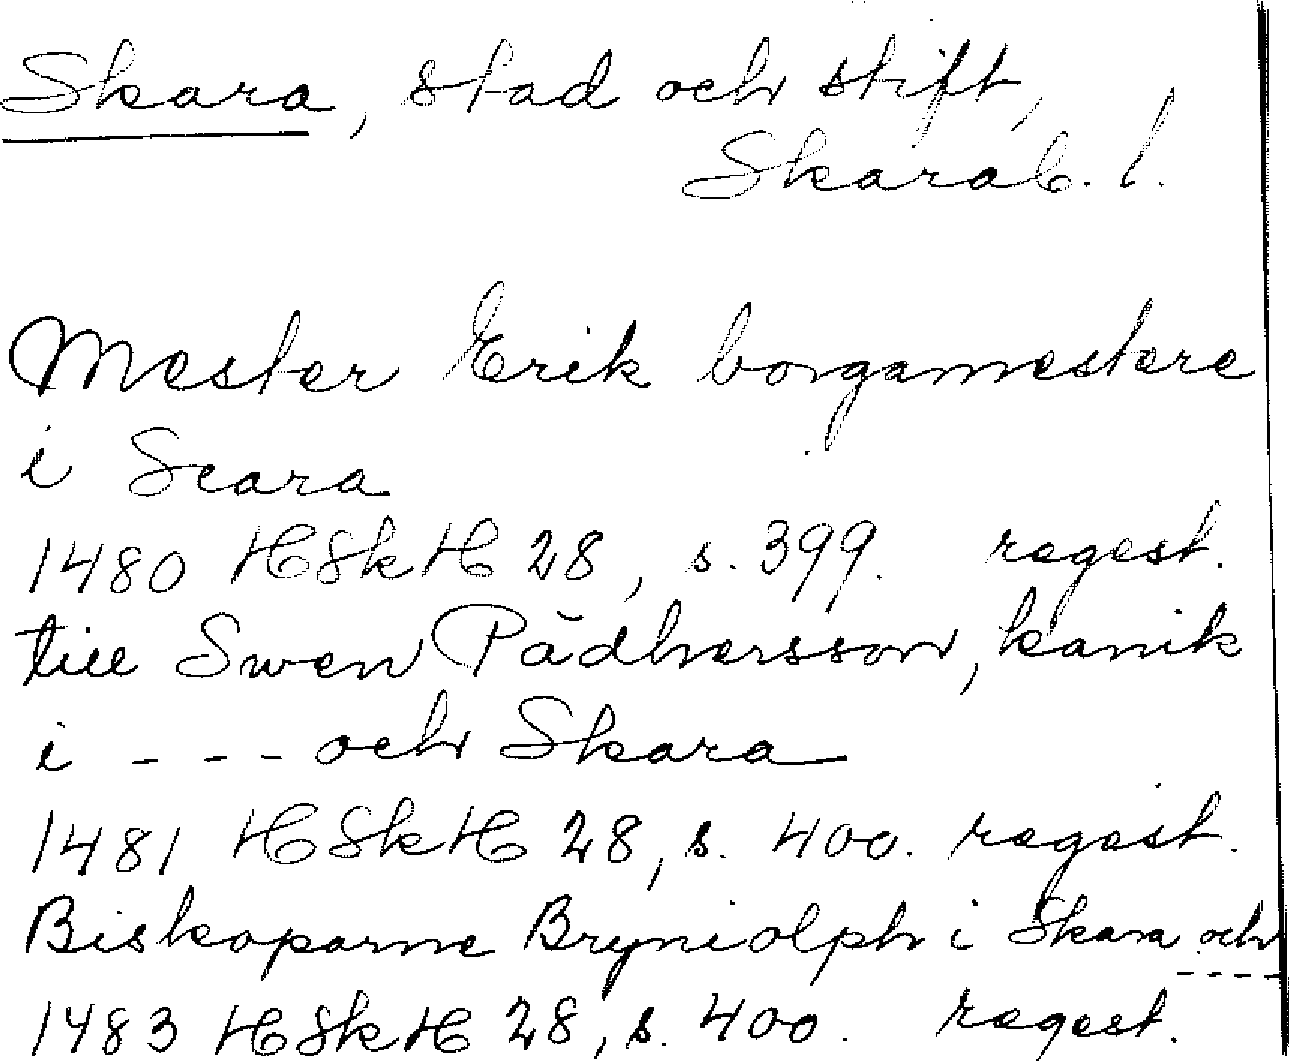 Skara, stad och stift,
Skarab. l.
Mester Erik borgamestere
i Scara
1480 HSkH 28, s. 399. regest.
till Swen Pädhersson, kanik
i - - - och Skara
1481 HSkH 28, s. 400. regest.
Biskoparne Bryniolph i Skara och
- - - -
1483 HSkH 28, s. 400. regest.